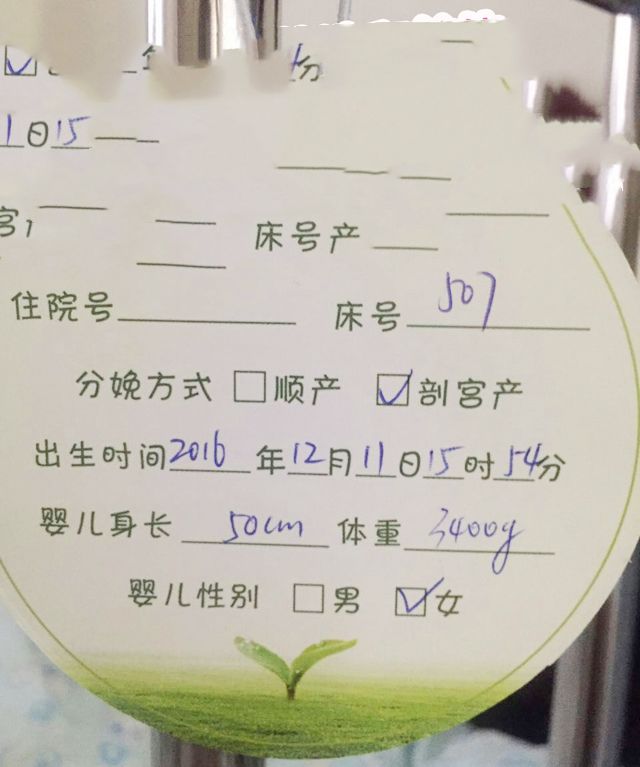 分
1日15
宫
床号产
住院号 床号 507
分娩方式 □顺产 ☑剖宫产
出生时间2016年12月11日15时54分
婴儿身长 50cm 体重 3400g
婴儿性别 □男 ☑女